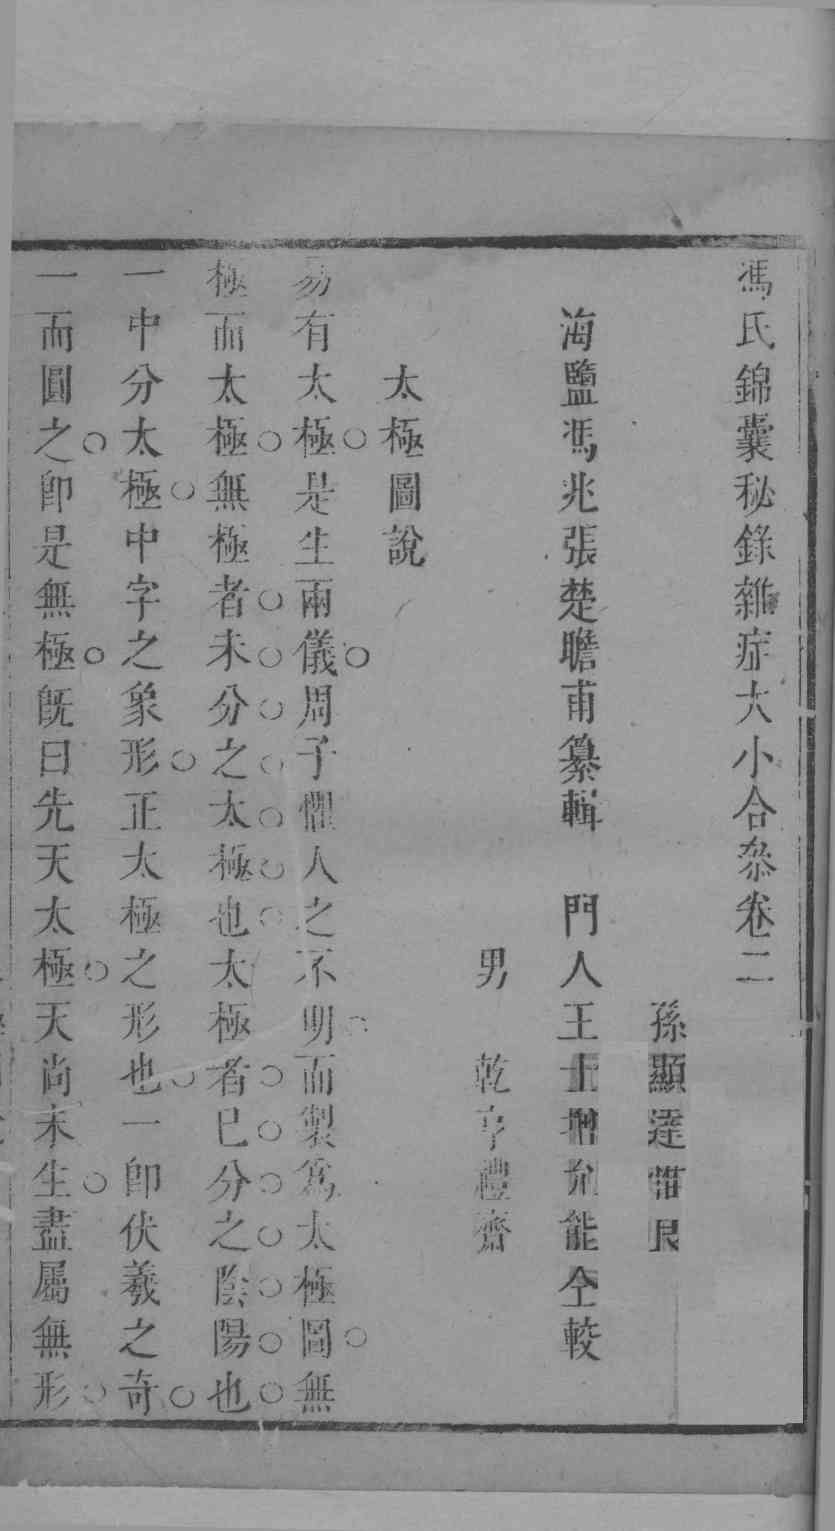 馮氏錦囊秘錄雜症大小合叅卷二
孫顯達惜艮
海鹽馮兆張楚瞻甫纂輯　門人王士增允能仝較
男　乾亨禮齋
太極圖說
易有太極是生兩儀周子懼人之不明而製爲太極圖無
極而太極無極者未分之太極也太極者已分之陰陽也
一中分太極中字之象形正太極之形也一卽伏羲之奇
一而圓之卽是無極旣曰先天太極天尚未生盡屬無形